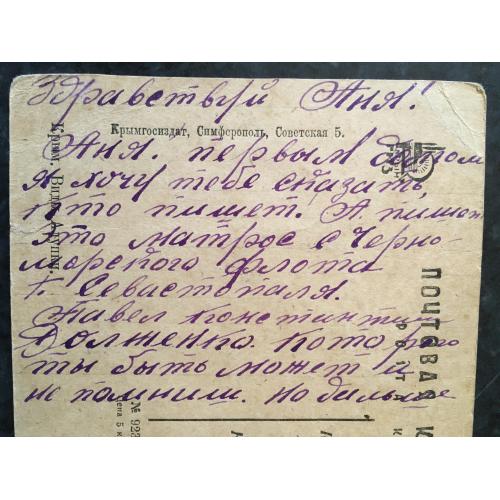 Здравствуй Аня!
Крымгосиздат, Симферополь, Советская 5.
Аня. первым долгом
я хочу тебе сказать,
кто пишет. А пишет
это матрос с Черно-
морского флота
г. Севастополя.
Павел Константин
Долженко. Которого
ты быть может и
не помнишь. Но дальше
Крым. Вид
ПОЧТОВАЯ К
№ 922
Цена 5 к